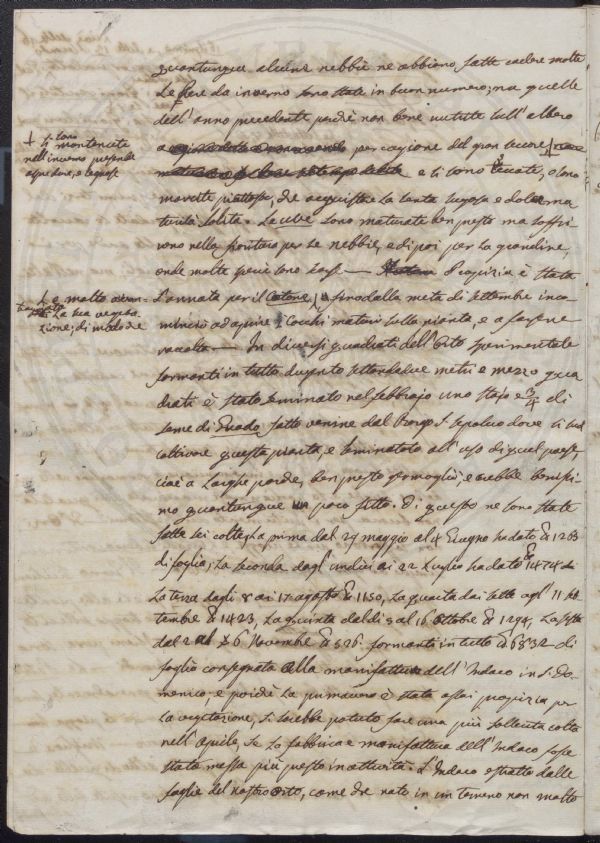 quantunque alcune nebbie ne abbiano fatte cadere molte
Le pere da inverno sono state in buon numero; ma quelle
dell'anno precedente perchè non bene nutrite sull'albero
a per cagione del gran secco
e si sono seccate, o sono
marcite piuttosto, che acquistare la tanta sugosa e dolce ma
turità solita. Le uve sono maturate ben presto ma soffri
rono nella fioritura per le nebbie, e di poi per la grandine,
onde molte specie sono scarse — Propizia è stata
l'annata per il Cotone, fino dalla metà di settembre inco
minciò ad aprire i Cocchi maturi sulla pianta, e a farsene
raccolta — In diversi quadrati dell'Orto sperimentale
formanti in tutto dugento settantadue metri e mezzo qua
drati è stato seminato nel febbrajo uno stajo e 3/4 di
seme di Guado fatto venire dal Borgo S. Sepolcro dove si suol
coltivare questa pianta, e seminatolo all'uso di quel paese,
cioè a larghe porche, ben presto germogliò, e crebbe benissi
mo quantunque un poco fitto. Di questo ne sono state
fatte sei colte, la prima dal 29 maggio al 4 Giugno ha dato ℔ 1263
di foglia; la seconda dagl'undici ai 22 Luglio ha dato ℔ 1474
La terza dagli 8 ai 17 agosto ℔ 1150, la quarta dai sette agl'11 set
tembre ℔ 1423, la quinta dal dì 5 al 16 Ottobre ℔ 1294, la sesta
dal 2 al 6 Novembre ℔ 526. formanti in tutto ℔ 6832 di
foglia consegnata alla manifattura dell'Indaco in S. Do-
menico, e poichè la primavera è stata assai propizia per
la vegetazione, si sarebbe potuto fare una più sollecita colta
nell'Aprile, se la fabbrica e manifattura dell'Indaco fosse
stata messa più presto in attività. L'Indaco estratto dalle
foglie del nostro Orto, come che nato in un terreno non molto
si sono
mantenute
nell'inverno
aspre dure, e legnose
e molto
la sua vegeta-
zione; di modo che